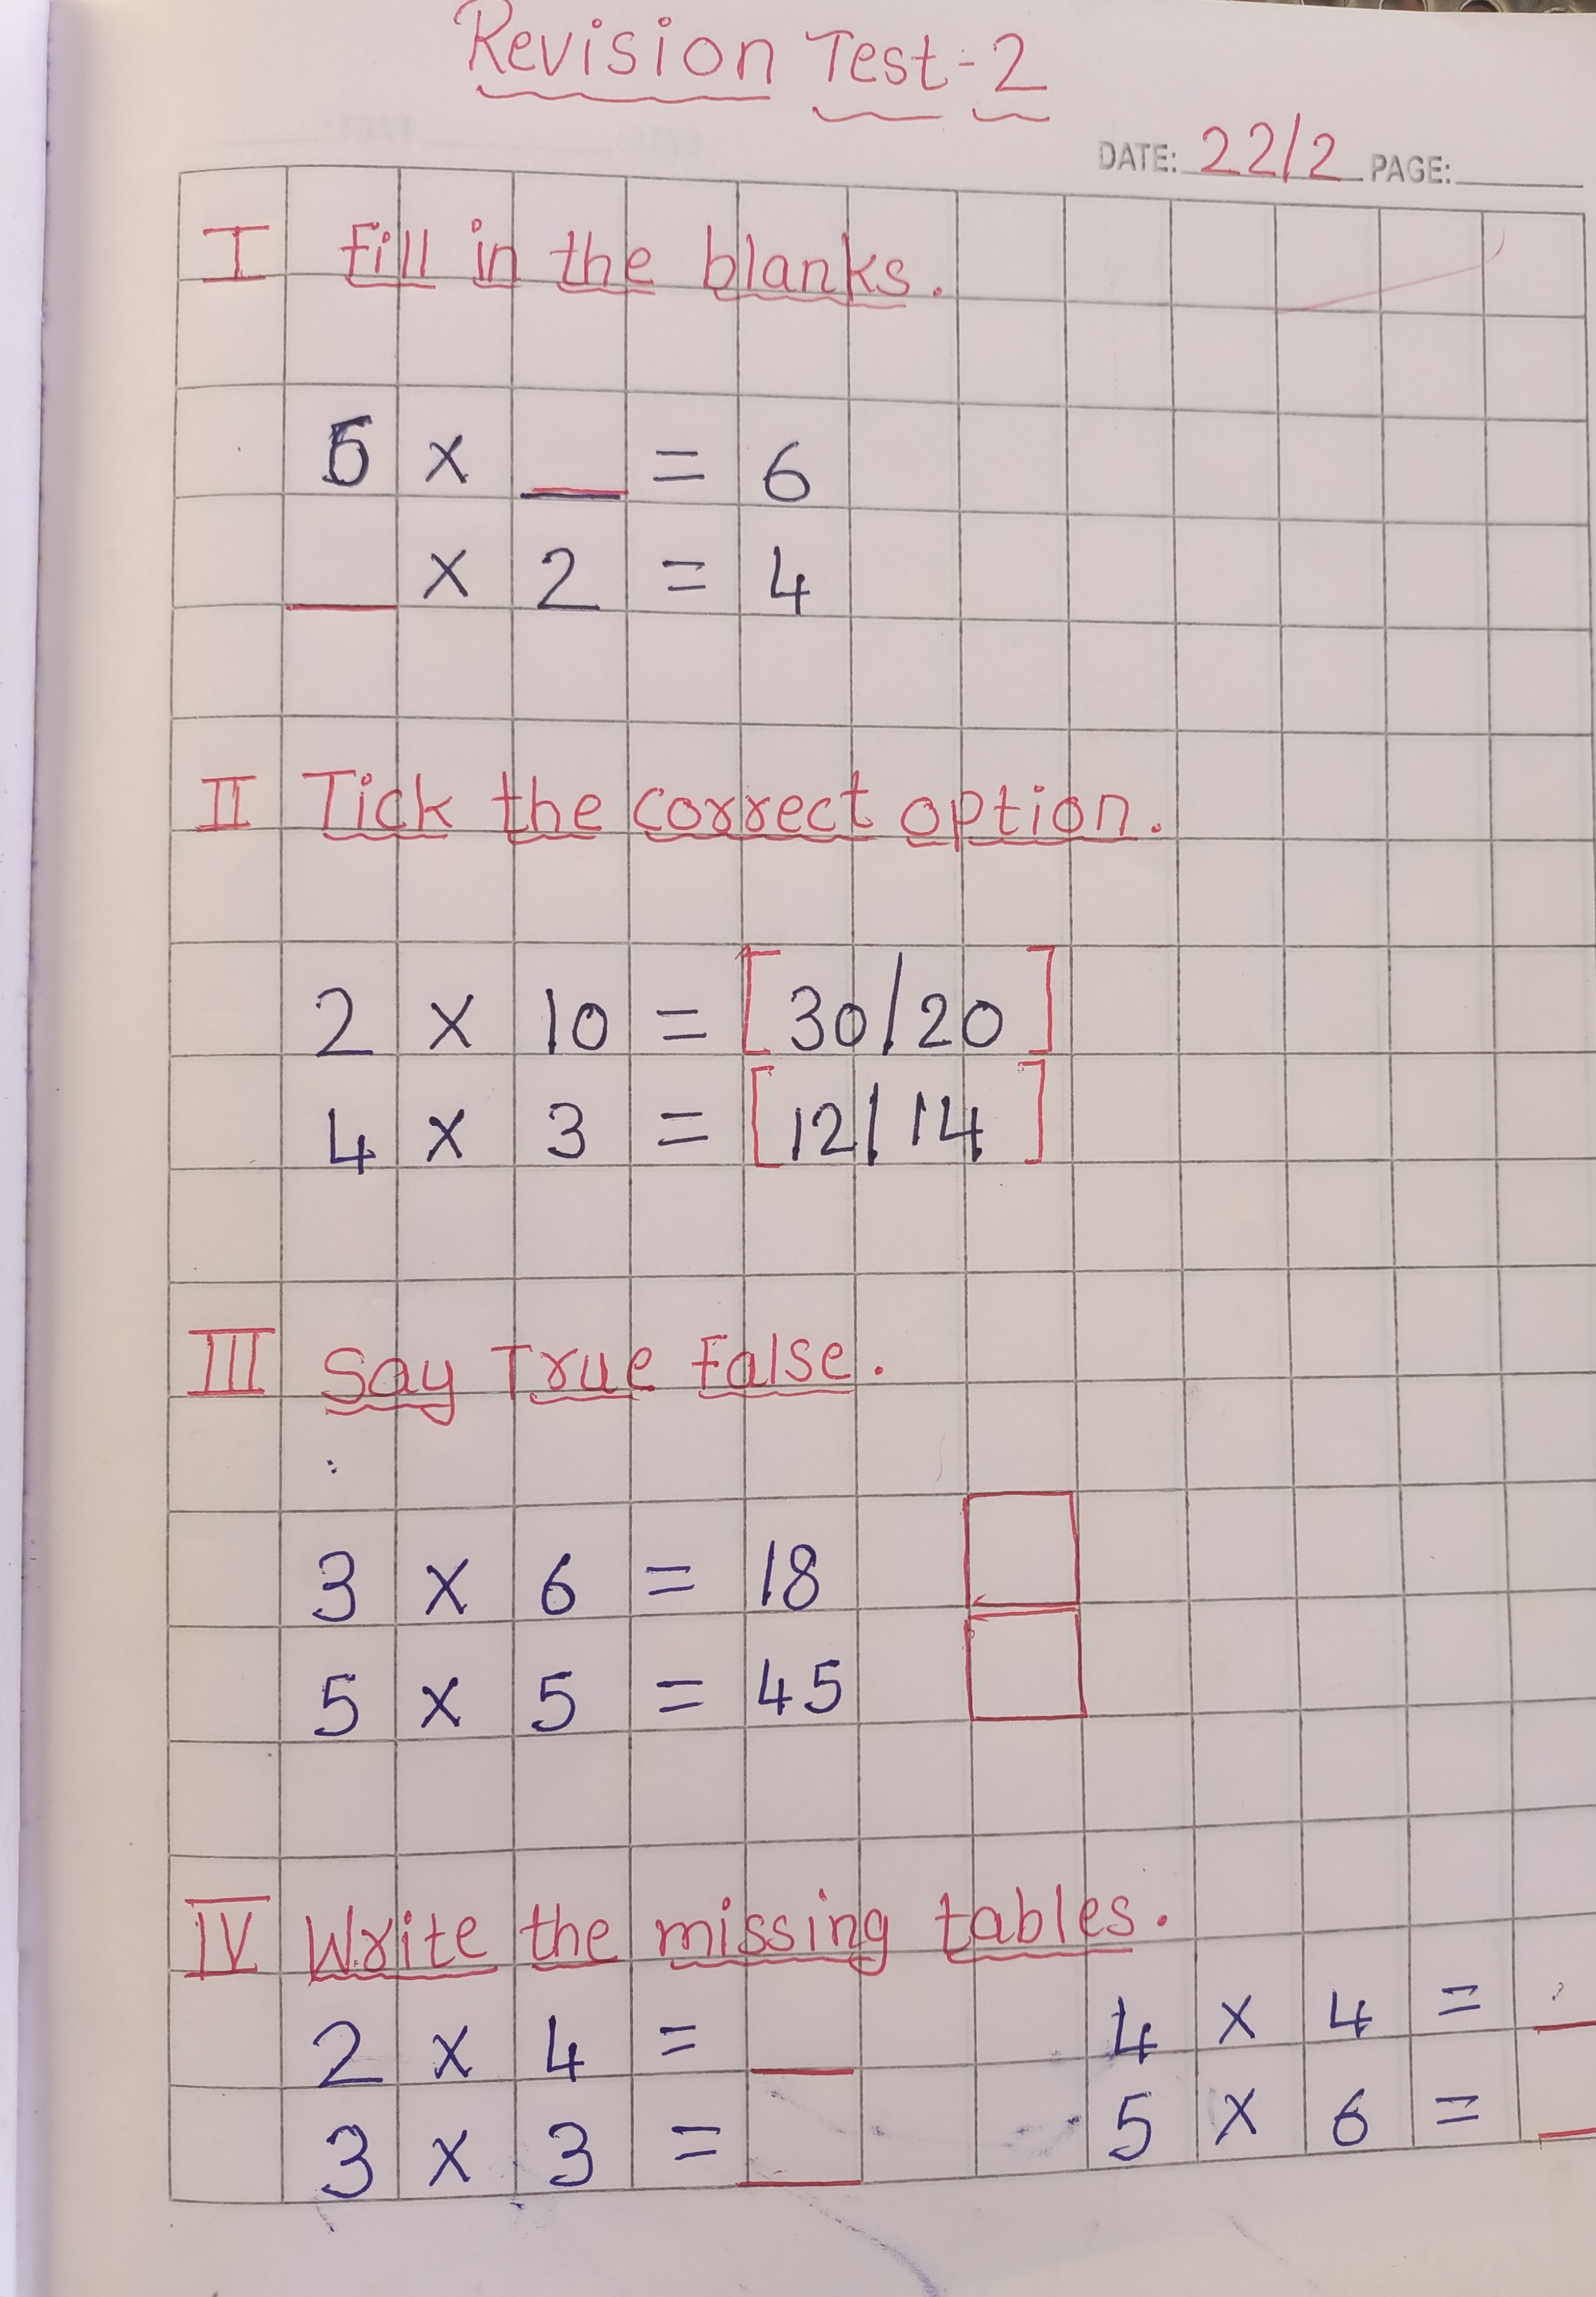 Revision Test-2
DATE: 22/2 PAGE:
I fill in the blanks.
× __ = 6
__ × 2 = 4
II Tick the correct option.
2 × 10 = [30/20]
4 × 3 = [12/14]
III Say True False.
3 × 6 = 18
5 × 5 = 45
IV Write the missing tables.
2 × 4 = __ 4 × 4 = __
3 × 3 = __ 5 × 6 = __